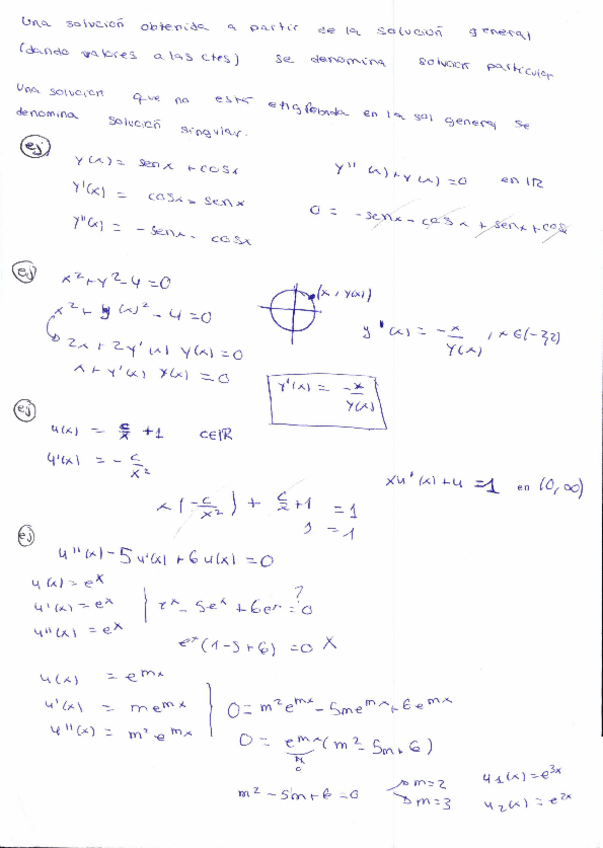 Una solución obtenida a partir de la solución general
(dando valores a las ctes) se denomina solución particular
Una solución que no está englobada en la sol general se
denomina solución singular.
ej
y(x) = senx + cosx
y''(x) + y(x) = 0 en IR
y'(x) = cosx - senx
0 = -senx - cosx + senx + cosx
y''(x) = -senx - cosx
ej
x² + y² - 4 = 0
(x, y(x))
x² + y(x)² - 4 = 0
y'(x) = -x/y(x) , x ∈ (-2,2)
2x + 2y'(x) y(x) = 0
x + y'(x) y(x) = 0
y'(x) = -x/y(x)
ej
u(x) = c/x + 1 c∈IR
u'(x) = -c/x²
xu'(x) + u = 1 en (0, ∞)
x(-c/x²) + c/x + 1 = 1
1 = 1
ej
u''(x) - 5u'(x) + 6u(x) = 0
u(x) = eˣ
u'(x) = eˣ
eˣ - 5eˣ + 6eˣ = 0
?
u''(x) = eˣ
eˣ(1-5+6) = 0 X
u(x) = e^mx
u'(x) = me^mx
0 = m²e^mx - 5me^mx + 6e^mx
u''(x) = m²e^mx
0 = e^mx (m² - 5m + 6)
0
m² - 5m + 6 = 0
m = 2
u1(x) = e^3x
m = 3
u2(x) = e^2x